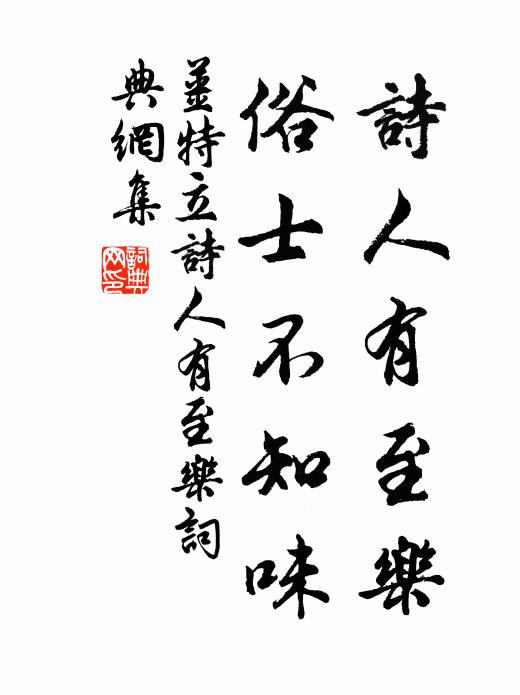 詩人有至樂
俗士不知味
薑特立詩人有至樂詞
典網集
詞典
网印